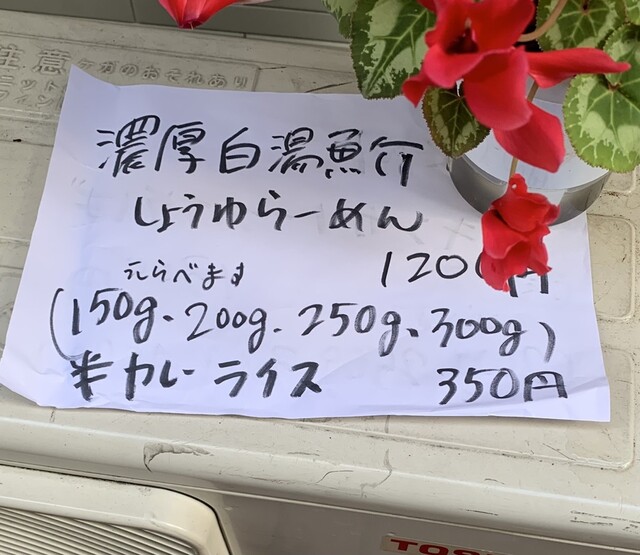 注意 ケガのおそれあり
濃厚白湯魚介
しょうゆらーめん
1200円
えらべます
(150g、200g、250g、300g)
半カレーライス 350円
TOS